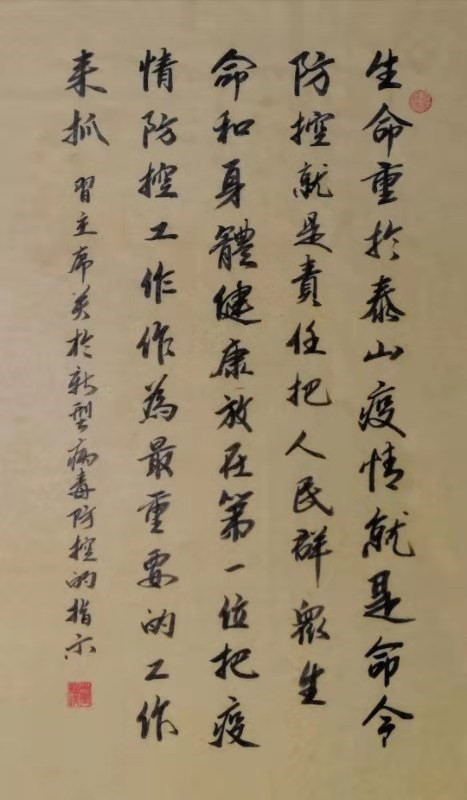 生命重於泰山疫情就是命令
防控就是責任把人民群眾生
命和身體健康放在第一位把疫
情防控工作作為最重要的工作
来抓
習主席关於新型病毒防控的指示